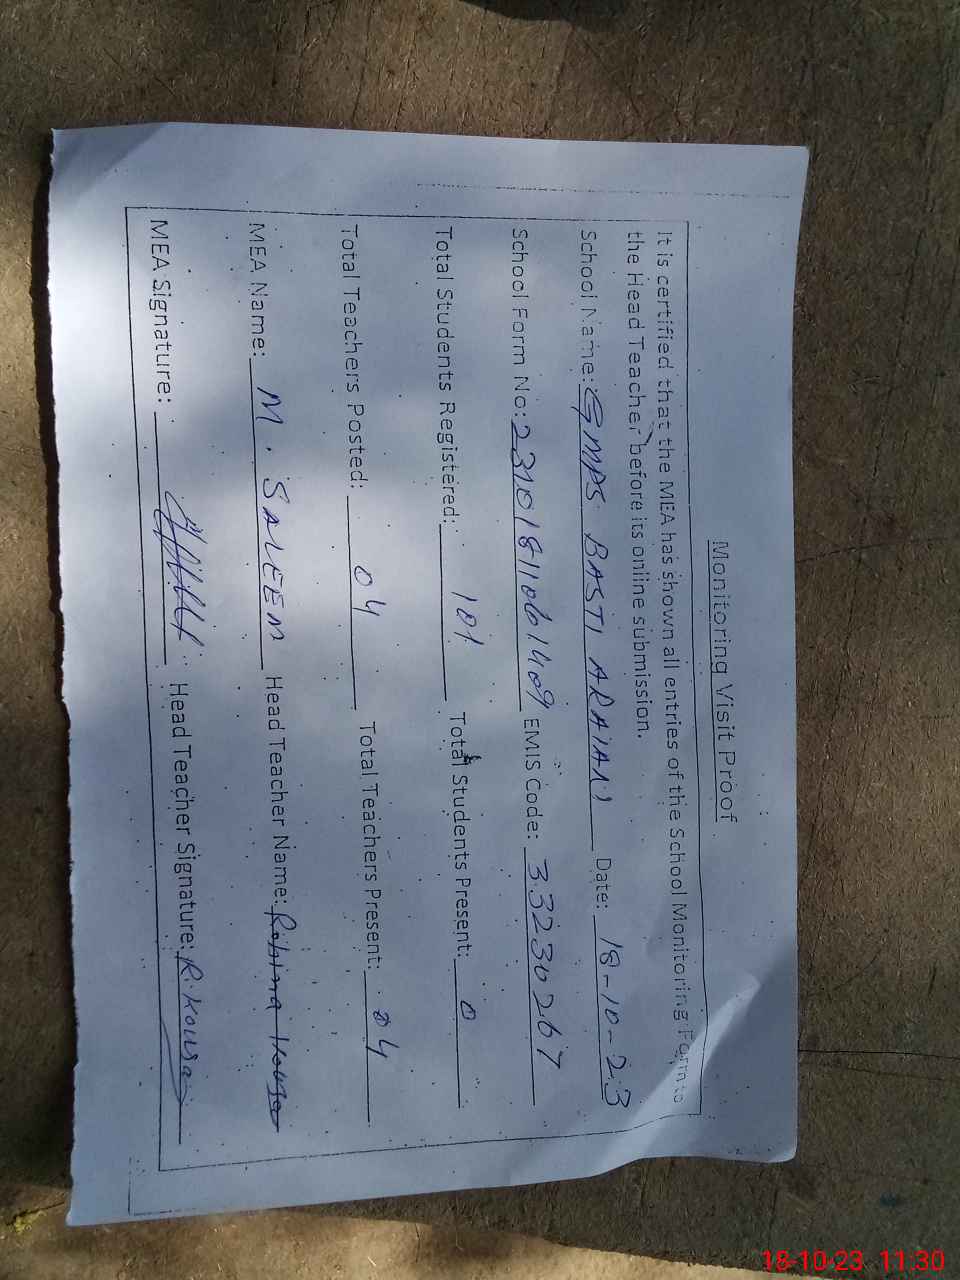 Monitoring Visit Proof
It is certified that the MEA has shown all entries of the School Monitoring Form to
the Head Teacher before its online submission.
School Name: GMPS BASTI ARAIAN Date: 18-10-23
School Form No: 23101811061409 EMIS Code: 33230267
Total Students Registered: 101 Total Students Present: 0
Total Teachers Posted: 04 Total Teachers Present: 04
MEA Name: M. SALEEM Head Teacher Name: Robina Kousar
MEA Signature: Head Teacher Signature: R.Kousar
18-10-23 11:30